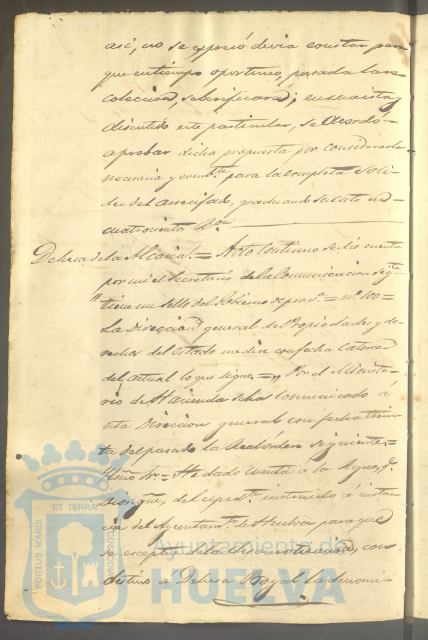 así, no se espresó devia constar para
que en tiempo oportuno, pasada la re-
coleccion, se berificara; en su vista y
discutido este particular, se Acordó
aprobar dicha propuesta por considerarla
necesaria y para la completa soli-
dez del arrecife, graduando su costo en
cuatrocientos
Dehesa de la Alcaria.= Acto continuo se dió cuenta
por mi el Secretario de la Comunicacion sigte
"tiene un sello del Gobierno de prova = nº 100 =
La Direccion general de Propiedades y de-
rechos del Estado me dice con fecha catorce
del actual lo que sigue = Por el Ministe-
rio de Hacienda se ha comunicado á
esta Direccion general con fecha trein-
ta del pasado la Real orden siguiente =
Ylmo Sr = He dado cuenta a la Reyna, q.
Dios gue, del espedte instruido á instan-
cia del Ayuntamto de Huelva para que
se esceptue de la desamortizacion, con
destino a Dehesa Boyal la denomi-
PORTUS MARIS
ET TERRAE
CUSTODIA
Ayuntamiento de
HUELVA